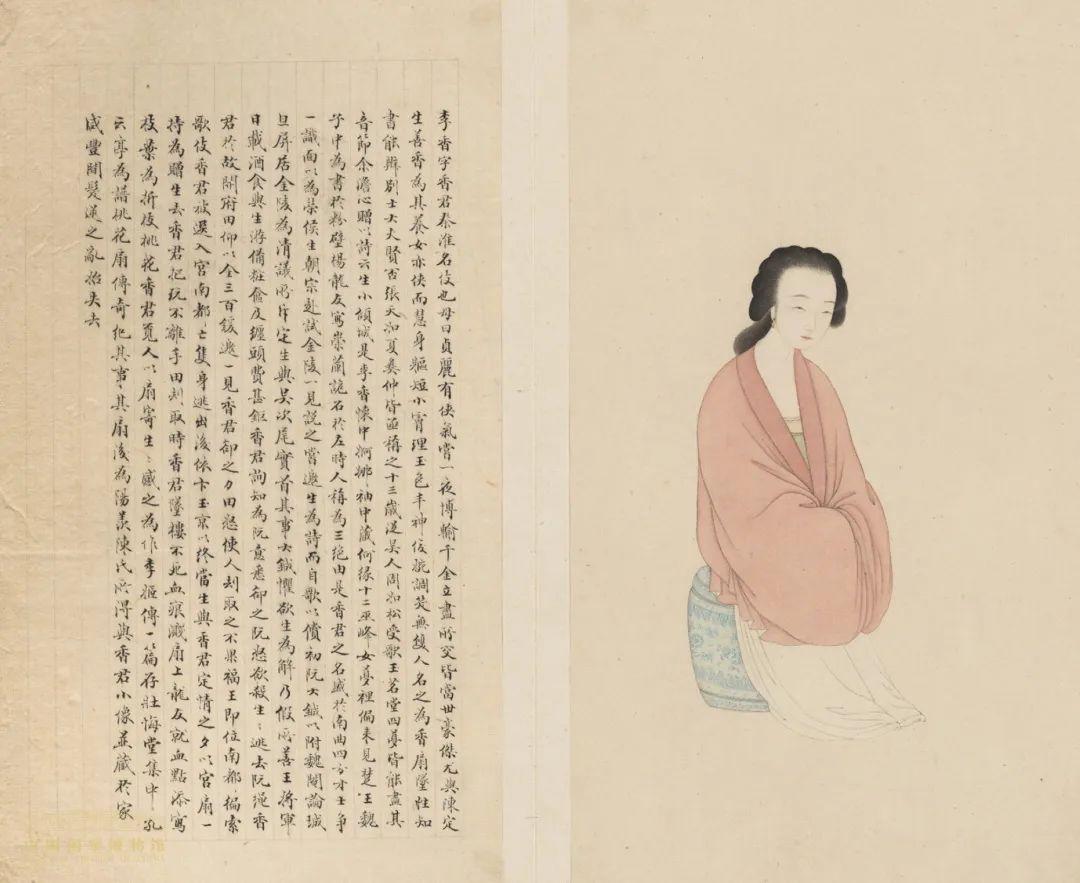 李香字香君秦淮名伎也母曰貞麗有俠氣嘗一夜博輸千金立盡所交皆當世豪傑尤與陳定
生善香為其養女亦俠而慧身軀短小膚理玉色丰神俊婉調笑無雙人名之為香扇墜性知
書能辨別士大夫賢否張天如夏彝仲皆亟稱之十三歲從吳人周如松受歌玉茗堂四夢皆能盡其
音節余澹心贈以詩云生小傾城是李香懷中婀娜袖中藏何緣十二巫峰女夢裡偏來見楚王魏
子中為書於粉壁楊龍友寫崇蘭詭石於左時人稱為三絕由是香君之名盛於南曲四方才士爭
一識面以為榮侯生朝宗赴試金陵一見說之嘗邀生為詩而自歌以償初阮大鋮以附魏閹論城
旦屏居金陵為清議所斥定生與吳次尾實首其事大鋮懼欲生為解乃假所善王將軍
日載酒食與生游備粧奩及纏頭費甚鉅香君詢知為阮意悉卻之阮怒欲殺生〻逃去阮繩香
君於故開府田仰以金三百鍰邀一見香君卻之力田怒使人刦取之不果福王即位南都徧索
歌伎香君被選入宮南都亡隻身逃出後依卞玉京以終當生與香君定情之夕以宮扇一
持為贈生去香君把玩不離手田刦取時香君墜樓不死血痕濺扇上龍友就血點添寫
枝葉為折枝桃花香君覓人以扇寄生〻感之為作李姬傳一篇存壯悔堂集中孔
云亭為譜桃花扇傳奇紀其事〻其扇後為陽羨陳氏所得與香君小像並藏於家
咸豐間髮逆之亂拾失去